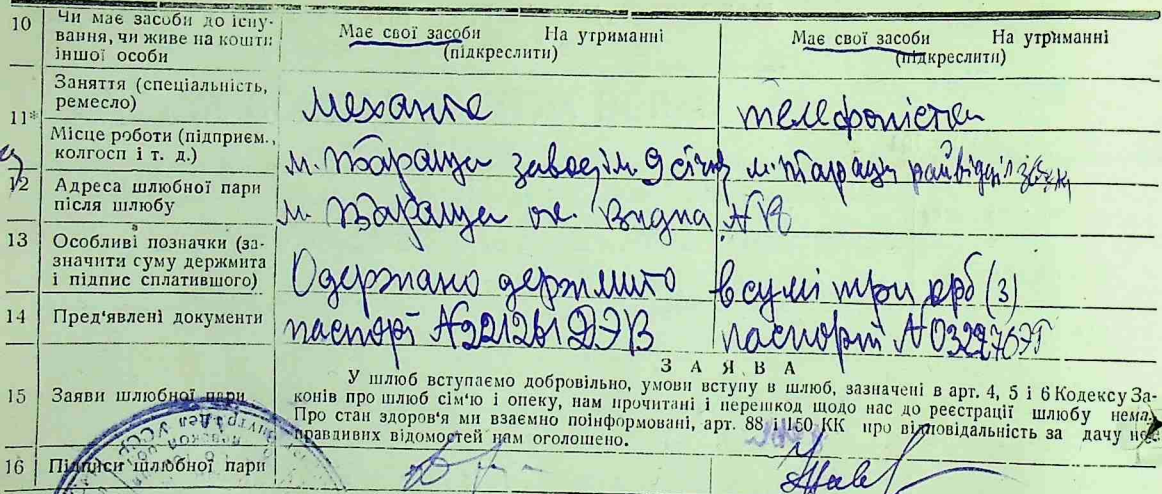 10 Чи має засоби до існу-
вання, чи живе на кошти
іншої особи
Має свої засоби На утриманні
(підкреслити)
Має свої засоби На утриманні
(підкреслити)
11* Заняття (спеціальність,
ремесло)
механік
телефоністка
Місце роботи (підприєм.,
колгосп і т. д.)
м. Тараща завод ім. 9 січня
м. Тараща райвідділ зв'язку
12 Адреса шлюбної пари
після шлюбу
м. Тараща
13 Особливі позначки (за-
значити суму держмита
і підпис сплатившого)
Одержано держмито в сумі три крб (3)
14 Пред'явлені документи
паспорт
паспорт
15 Заяви шлюбної пари
ЗАЯВА
У шлюб вступаємо добровільно, умови вступу в шлюб, зазначені в арт. 4, 5 і 6 Кодексу За-
конів про шлюб сім'ю і опеку, нам прочитані і перешкод щодо нас до реєстрації шлюбу нема.
Про стан здоров'я ми взаємно поінформовані, арт. 88 і 150 КК про відповідальність за дачу не-
правдивих відомостей нам оголошено.
16 Підписи шлюбної пари